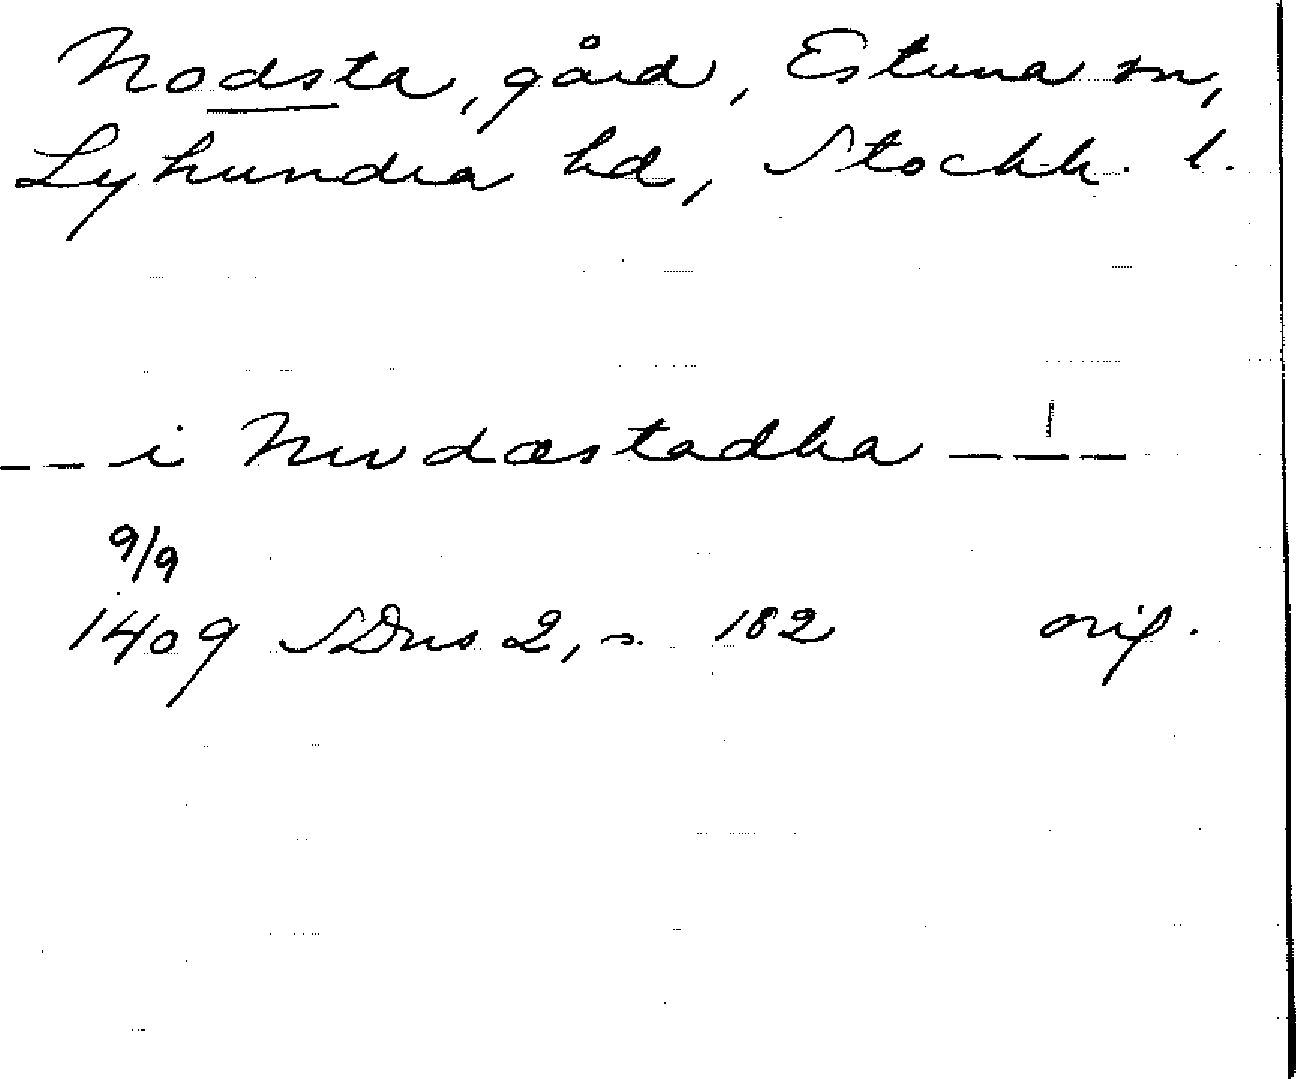 Nodsta, gård, Estuna sn,
Lyhundra hd, Stockh. l.
-- i Nwdæstadha ---
9/9
1409 SDns 2, s. 182 orig.